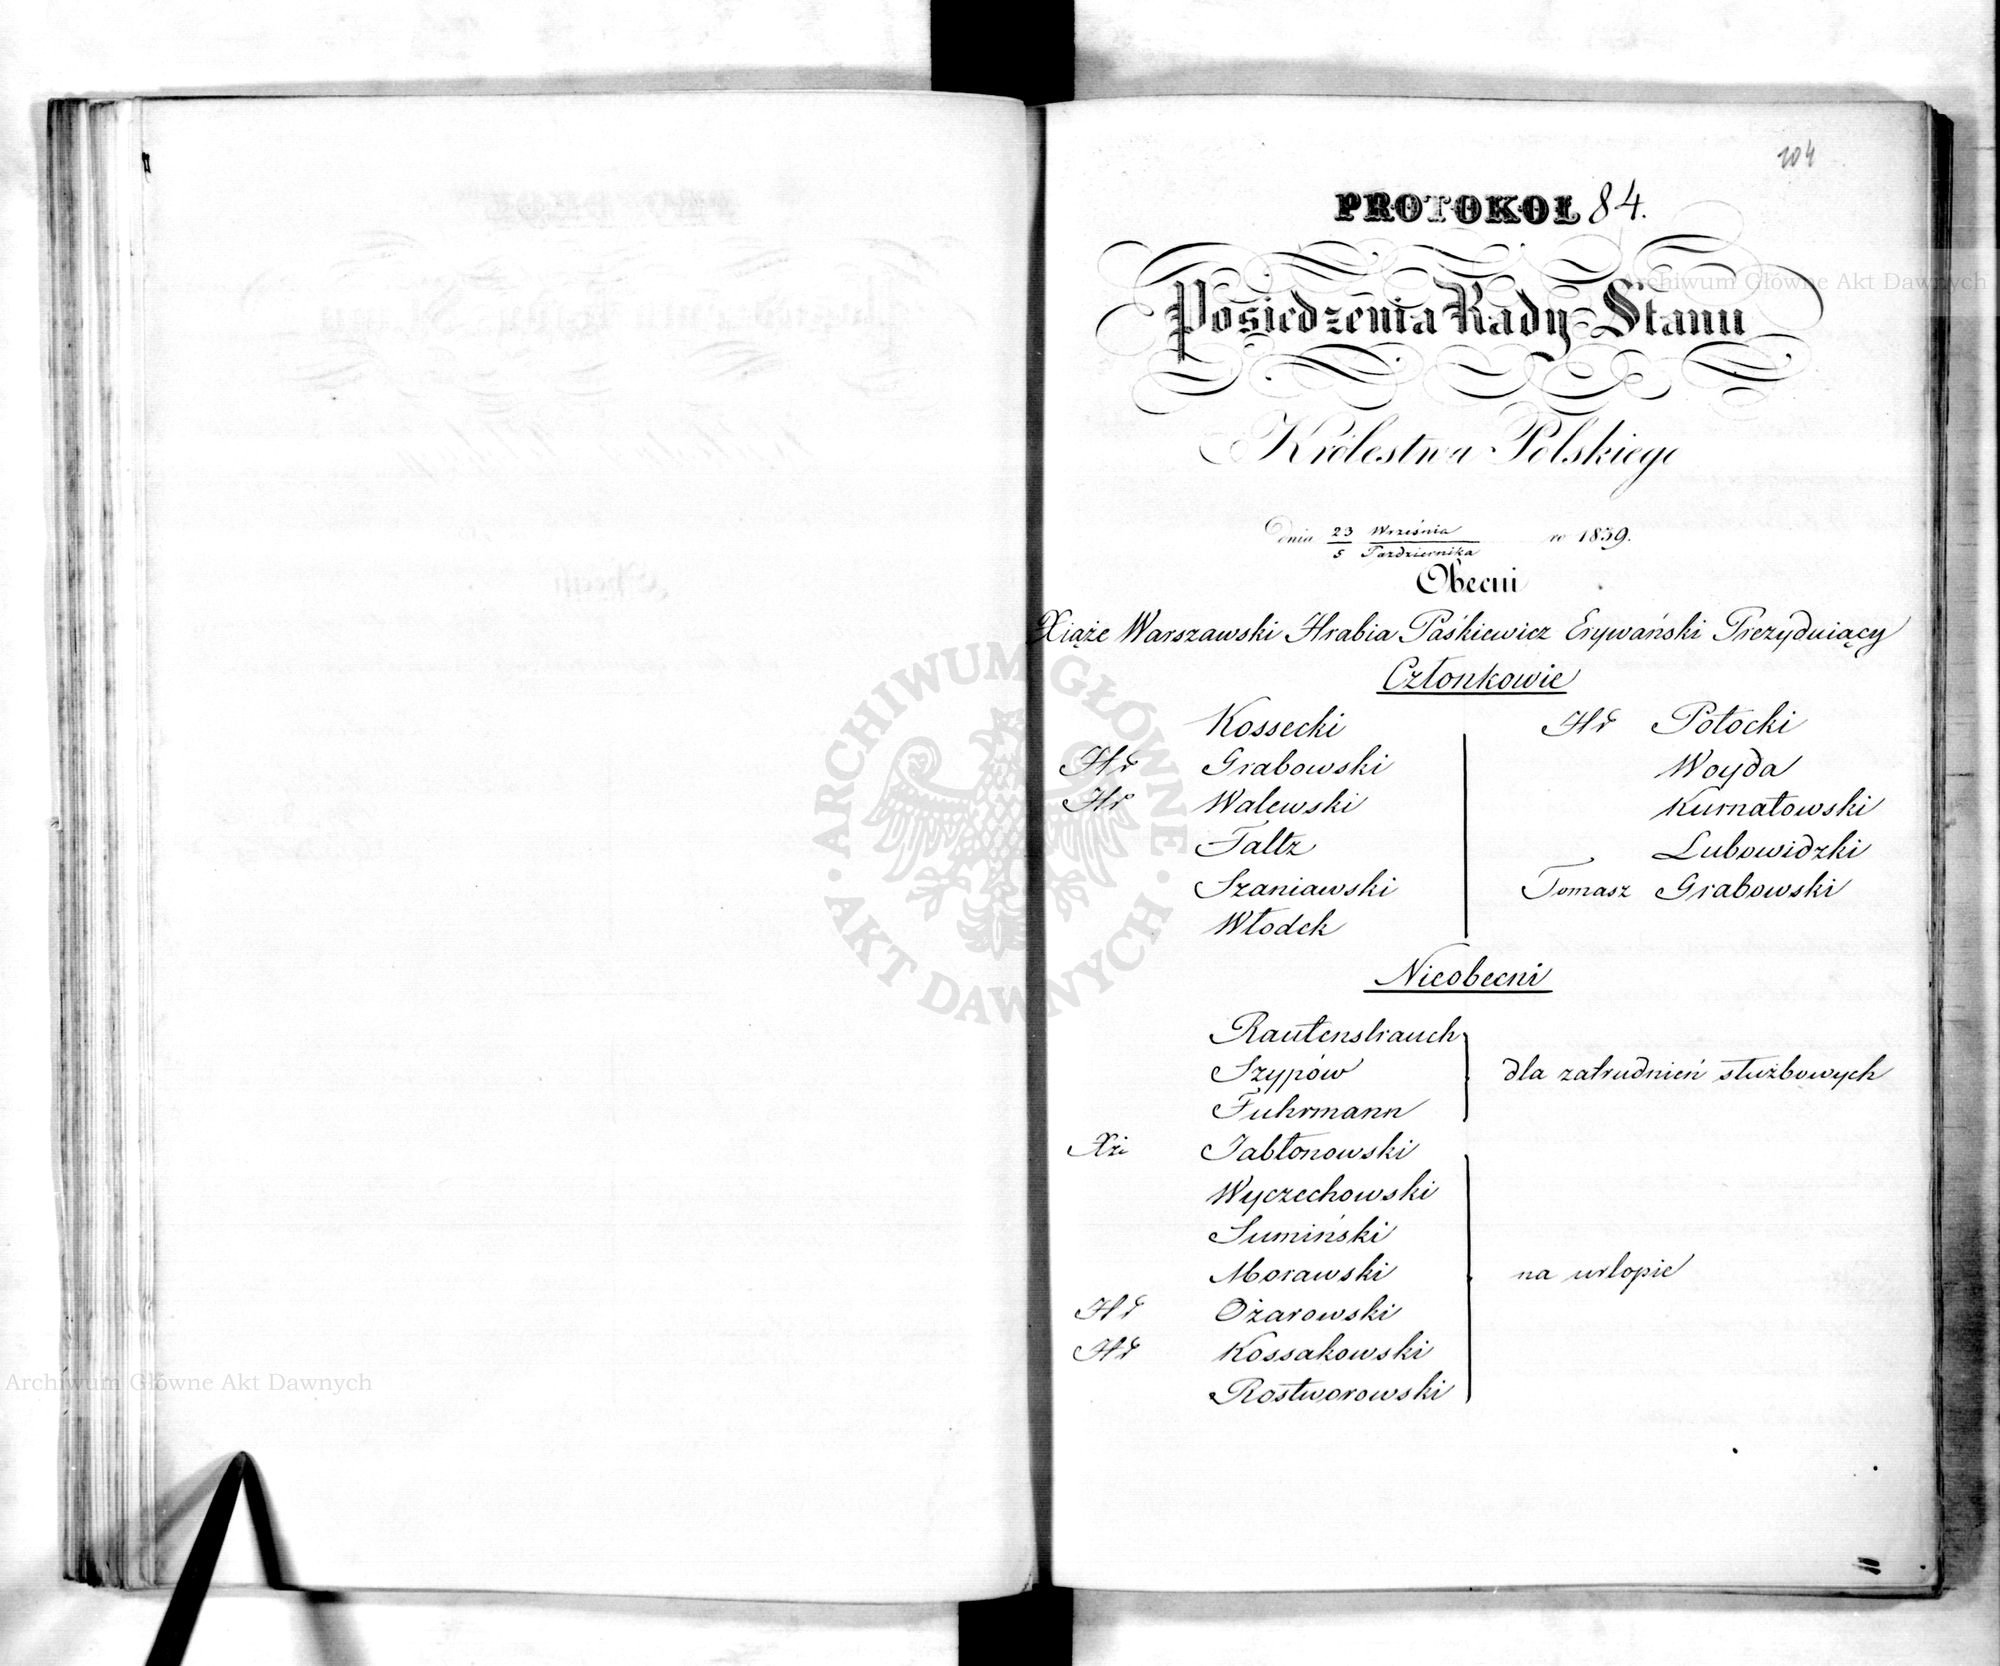 104
PROTOKOŁ 84.
Posiedzenia Rady Stanu
Królestwa Polskiego
Dnia 23 Września / 5 Pazdziernika ro 1839.
Obecni
Xiąże Warszawski Hrabia Paśkiewicz Erywański Prezyduiący
Członkowie
Kossecki
Hr Grabowski
Hr Walewski
Faltz
Szaniawski
Włodek
Hr Potocki
Woyda
Kurnatowski
Lubowidzki
Tomasz Grabowski
Nieobecni
Rautenstrauch
Szypów
Fuhrmann
dla zatrudnień służbowych
Xże Jabłonowski
Wyczechowski
Sumiński
Morawski
Hr Ożarowski
Hr Kossakowski
Rostworowski
na urlopie
Archiwum Główne Akt Dawnych
ARCHIWUM GŁÓWNE
AKT DAWNYCH
Archiwum Główne Akt Dawnych